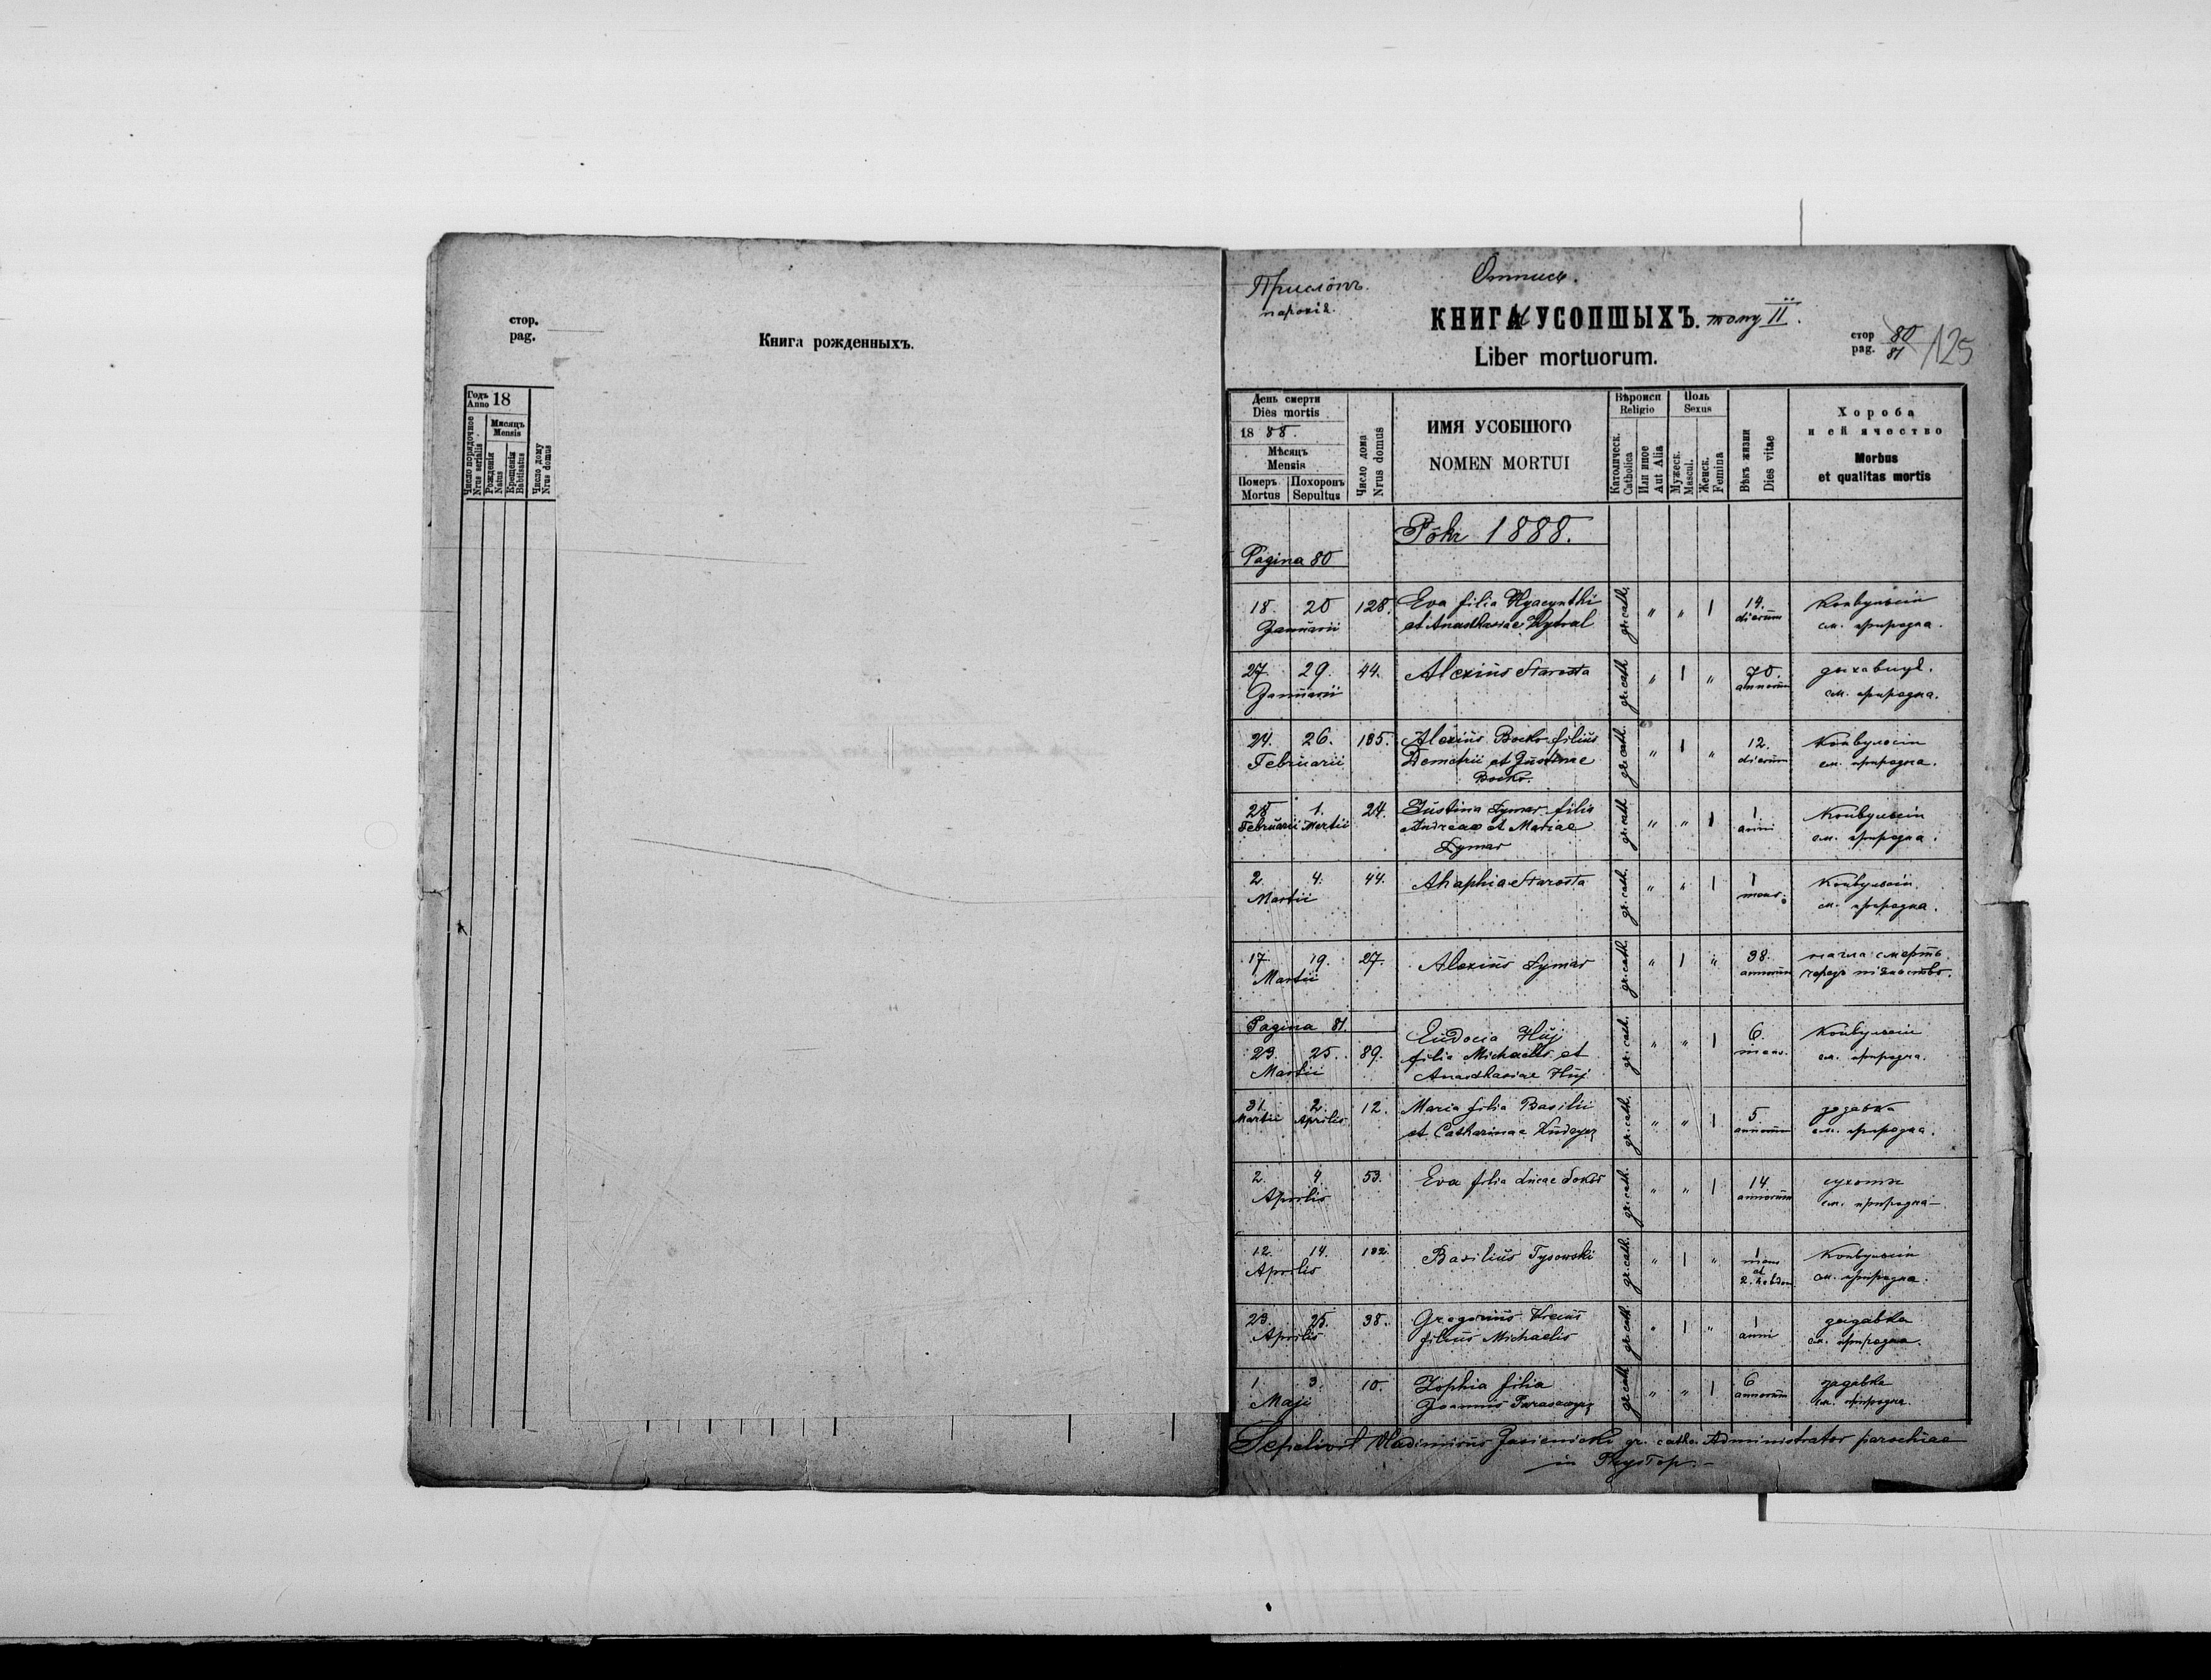 стор.
pag.
Книга рожденныхъ.
Годъ
Anno 18
Число порядочное
Nrus serialis
Мѣсяцъ
Mensis
Рожденія
Natus
Крещенія
Babtisatus
Число дому
Nrus domus
парохія.
Отпись.
КНИГА УСОПШЫХЪ. тому II.
Liber mortuorum.
стор
pag. 80
81
125
День смерти
Dies mortis
1888.
Мѣсяцъ
Mensis
Померъ
Mortus
Похоронъ
Sepultus
Число дома
Nrus domus
ИМЯ УСОБШОГО
NOMEN MORTUI
Вѣроисп
Religio
Католическ.
Catholica
Или иное
Aut Alia
Поль
Sexus
Мужеск.
Mascul.
Женск.
Femina
Вѣкъ жизни
Dies vitae
Хороба
и ей ячество
Morbus
et qualitas mortis
Рôкъ 1888.
Pagina 80
18. 20 128. Eva filia Hyacynthi gr. cath. " " 1 14. Конвульсіи
Januarii et Anasthasiae dierum см. природна.
27 29. 44. Alexius Starosta gr. cath. " 1 " 70.
Januarii annorum см. природна.
24. 26. 185. Alexius Bocko filius gr. cath. " 1 " 12. Конвульсіи
Februarii Demetrii et Justinae dierum см. природна.
Bocko.
28 1. 24. Justina Dymar filia gr. cath. " " 1 1 Конвульсіи
Februarii Martii Andreae et Mariae anni см. природна.
Dymar
2. 4. 44. Ahaphia Starosta gr. cath. " " 1 1 Конвульсіи.
Martii mens. см. природна.
17 19. 27. Alexius Dymar gr. cath. " 1 " 38. нагла смерть
Martii annorum через піянство.
Pagina 81.
Eudocia Huj
23. 25. 89. filia Michaelis et gr. cath. " " 1 6. Конвульсіи
Martii Anasthasiae Huj mens. см. природна.
31. 2. 12. Maria filia Basilii gr. cath. " " 1 5 задавка
Martii Aprilis et Catharinae annorum см. природна.
2. 4. 53. Eva filia Lucae gr. cath. " " 1 14 сухоты
Aprilis annorum см. природна
12. 14. 102. Basilius Tysowski gr. cath. " 1 " 1 Конвульсіи
Aprilis mens см. природна.
et
2. hebdom
23. 25. 38. Gregorius gr. cath. " 1 " 1 задавка
Aprilis filius Michaelis anni см. природна.
1 3. 10. Zophia filia gr. cath. " " 1 6 задавка
Maji Joannis annorum см. природна.
Sepelivit Vladimirus Jasienicki gr. cath. Administrator parochiae
in Przysłop.